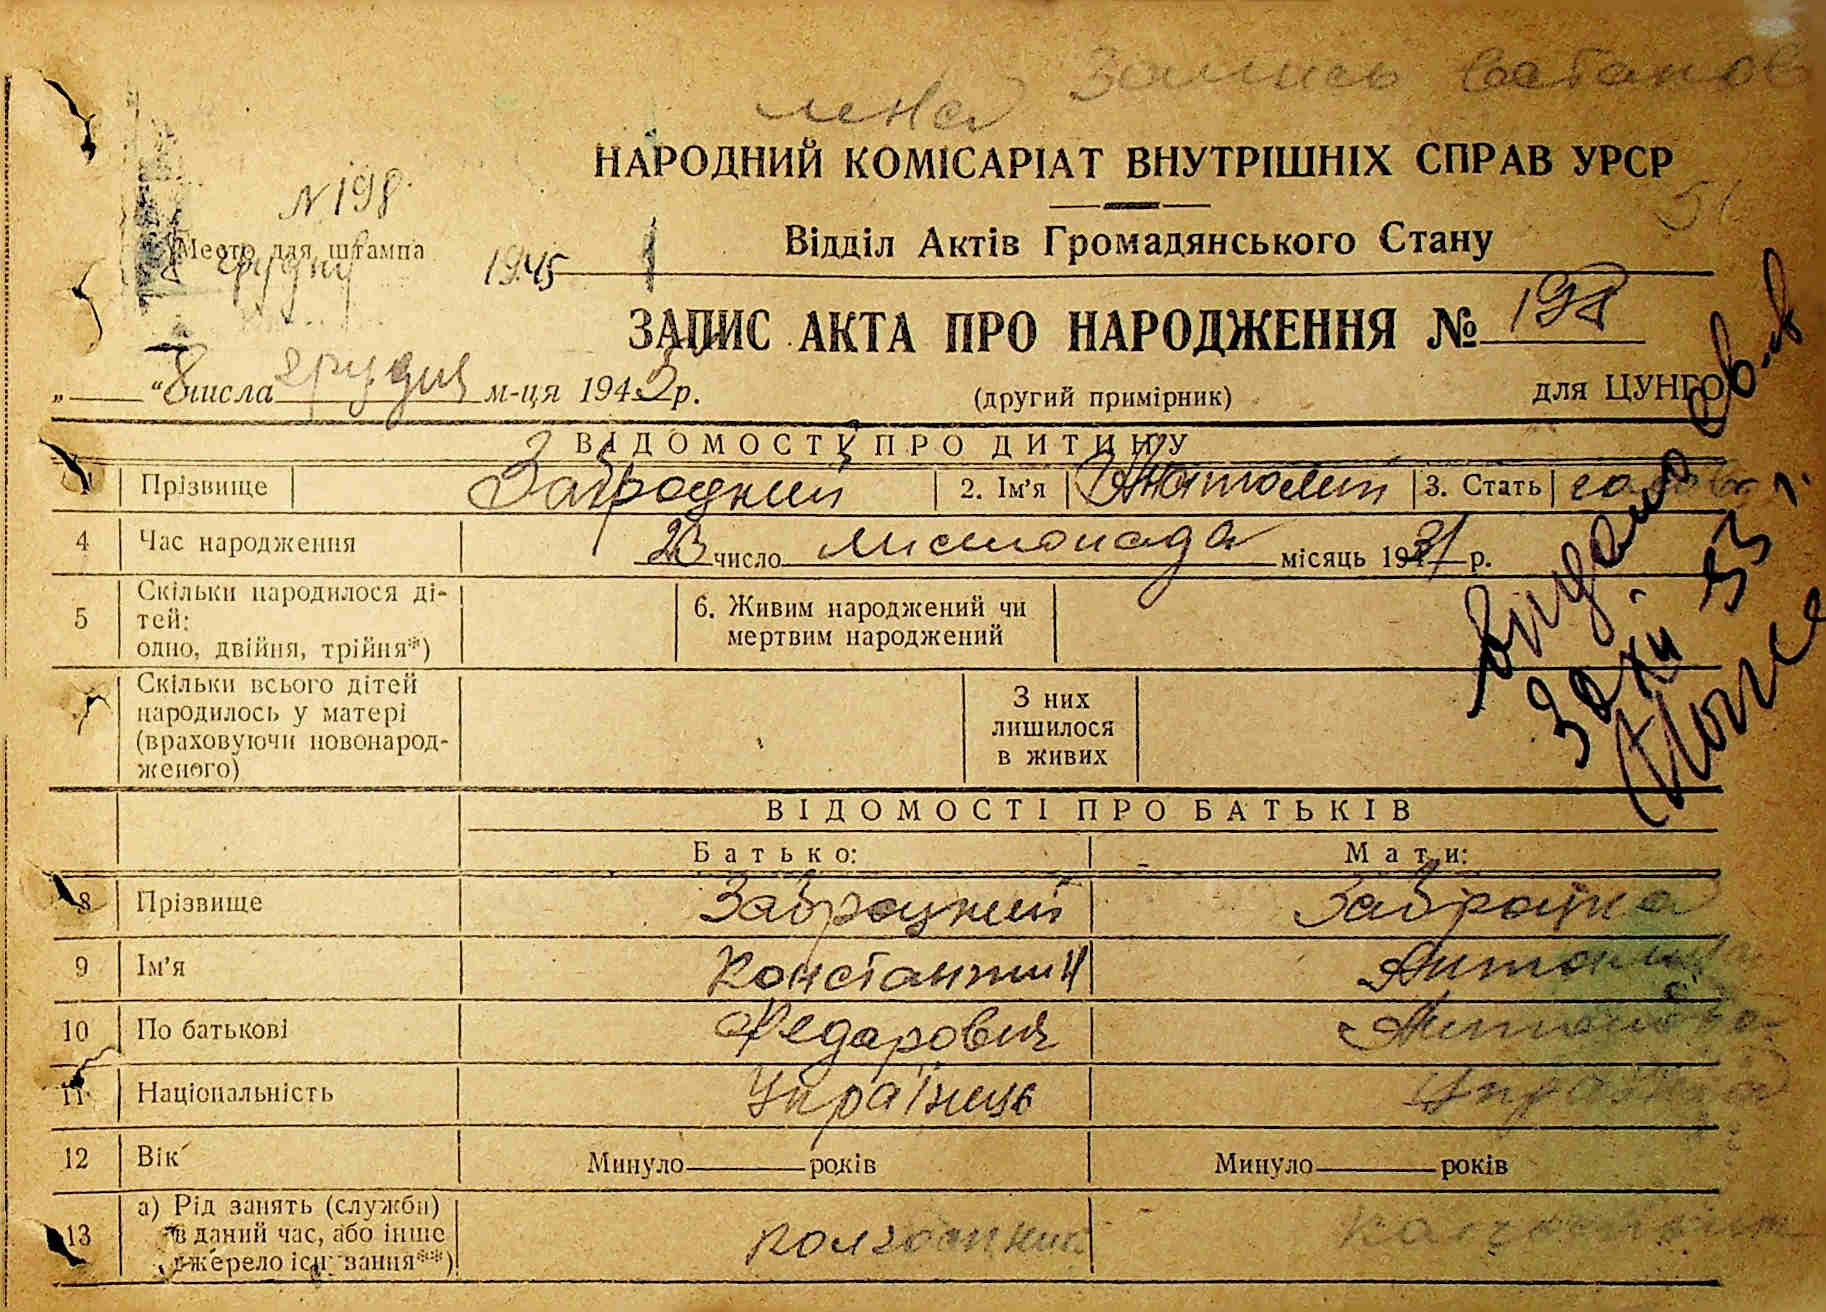 Запись востанов
лена
НАРОДНИЙ КОМІСАРІАТ ВНУТРІШНІХ СПРАВ УРСР
N 198
Место для штампа
Відділ Актів Громадянського Стану
грудня 1945
ЗАПИС АКТА ПРО НАРОДЖЕННЯ № 198
„ “ 8 числа грудня м-ця 1945 р.
(другий примірник)
для ЦУНГО
ВІДОМОСТІ ПРО ДИТИНУ
1 Прізвище Забродкий 2. Ім'я Анатолий 3. Стать
4 Час народження 23 число листопада місяць 1931 р.
5 Скільки народилося ді-
тей:
одно, двійня, трійня*)
6. Живим народжений чи
мертвим народжений
7 Скільки всього дітей
народилось у матері
(враховуючи новонарод-
женого)
З них
лишилося
в живих
видано
ВІДОМОСТІ ПРО БАТЬКІВ
Батько: Мати:
8 Прізвище Заброцкий Заброцка
9 Ім'я Константин Антонина
10 По батькові Федарович Антонова
11 Національність Українець Українка
12 Вік Минуло років Минуло років
13 а) Рід занять (служби)
в даний час, або інше
джерело існування**)
колгоспник